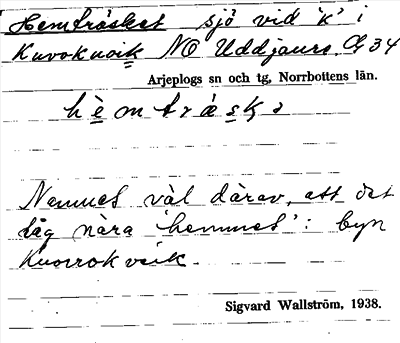 Hemträsket sjö vid 'k' i
Kuvokuoik NO Uddjaure, Gg 34
Arjeplogs sn och tg, Norrbottens län.
hèmtrǽskə
Namnet väl därav, att det
låg nära 'hemmet': byn
Kuorrokveik.
Sigvard Wallström, 1938.